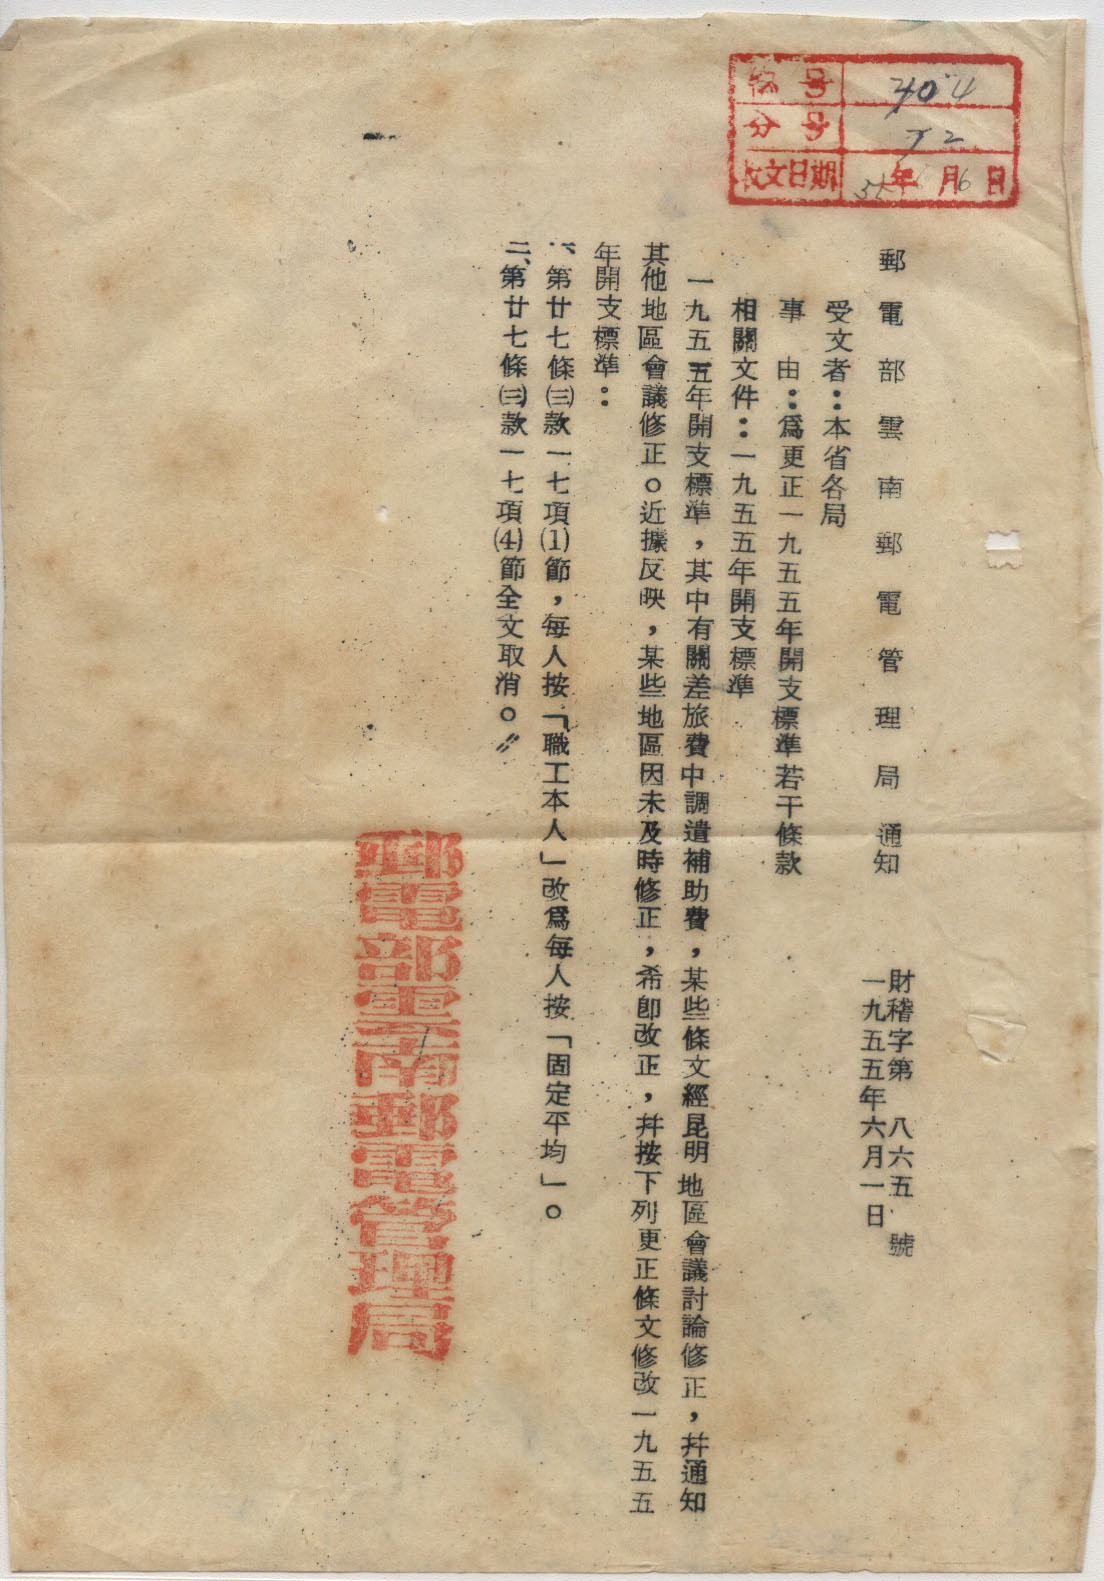 郵電部雲南郵電管理局通知
財稽字第八六五號
一九五五年六月一日
受文者：本省各局
事由：爲更正一九五五年開支標準若干條款
相關文件：一九五五年開支標準
一九五五年開支標準，其中有關差旅費中調遣補助費，某些條文經昆明地區會議討論修正，幷通知
其他地區會議修正。近據反映，某些地區因未及時修正，希卽改正，幷按下列更正條文修改一九五五
年開支標準：
一、第廿七條㈢款一七項⑴節，每人按「職工本人」改爲每人按「固定平均」。
二、第廿七條㈢款一七項⑷節全文取消。〃
郵電部雲南郵電管理局
号 404
分号 2
收文日期 55年6月6日